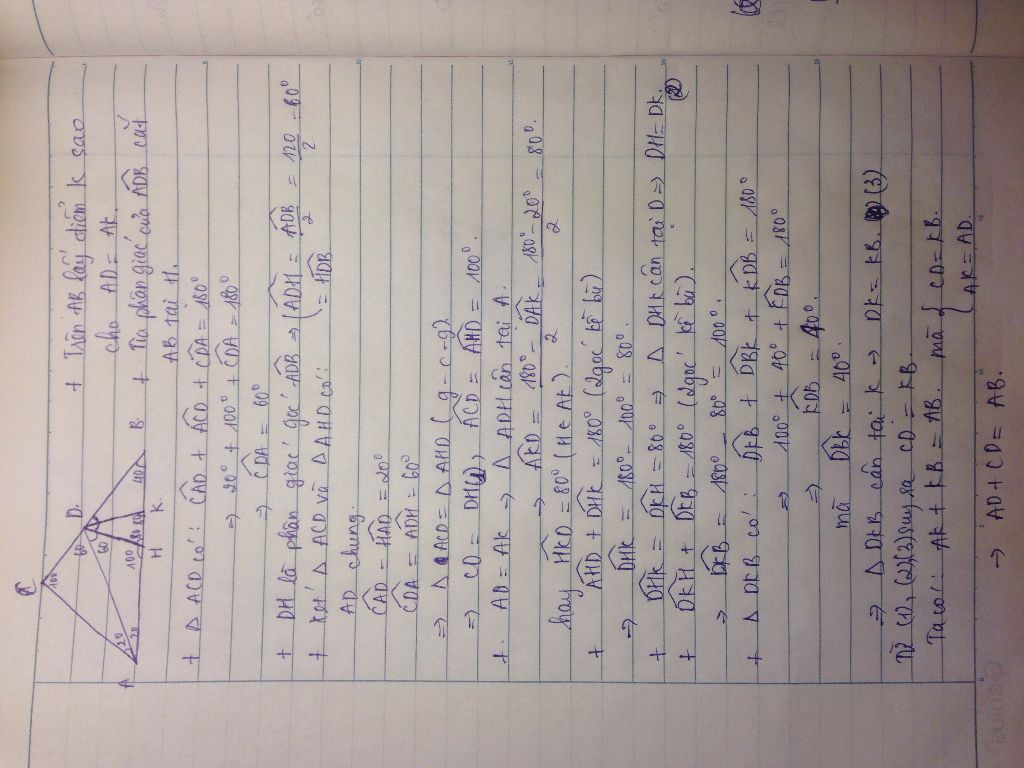 C
D
A
B
H
K
100
60
60
20
20
100
80
80
40
+ Trên AB lấy điểm K sao
cho AD = AK.
+ Tia phân giác của ADB cắt
AB tại H.
+ Δ ACD có: CAD + ACD + CDA = 180°
⇒ 20° + 100° + CDA = 180°
⇒ CDA = 60°
+ DH là phân giác góc ADB ⇒ (ADH = ADB/2 = 120/2 = 60°
(= HDB
+ Xét Δ ACD và Δ AHD có:
AD chung.
CAD = HAD = 20°
CDA = ADH = 60°
⇒ Δ ACD = Δ AHD (g-c-g)
⇒ CD = DH(1), ACD = AHD = 100°.
+ AD = AK ⇒ Δ ADH cân tại A.
⇒ AKD = 180° - DAK/2 = 180° - 20°/2 = 80°.
hay HKD = 80° (H∈AK).
+ AHD + DHK = 180° (2góc kề bù)
⇒ DHK = 180° - 100° = 80°.
+ DHK = DKH = 80° ⇒ Δ DHK cân tại D ⇒ DH = DK. (2)
+ DKH + DKB = 180° (2góc kề bù).
⇒ DKB = 180° - 80° = 100°.
+ Δ DKB có: DKB + DBK + KDB = 180°
⇒ 100° + 40° + KDB = 180°
⇒ KDB = 40°.
mà DBK = 40°.
⇒ Δ DKB cân tại K ⇒ DK = KB. (3)
Từ (1), (2), (3) suy ra CD = KB
Ta có: AK + KB = AB. mà { CD = KB.
AK = AD.
→ AD + CD = AB.